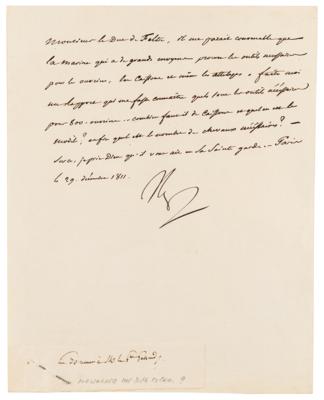 Monsieur le Duc de Feltre, il me paraît convenable que
la marine qui a de grands moyens prenne les outils nécessaires
pour les ouvriers, les Caissons et même les attelages. faites moi
un rapport qui me fasse connaître quels sont les outils nécessaires
pour 800 ouvriers - combien faut il de Caissons et quel en est le
modèle? enfin quel est le nombre de chevaux nécessaires? -
Sur ce, je prie Dieu qu'il vous ait en sa Sainte garde. - Paris
le 29. décembre 1811.
Np